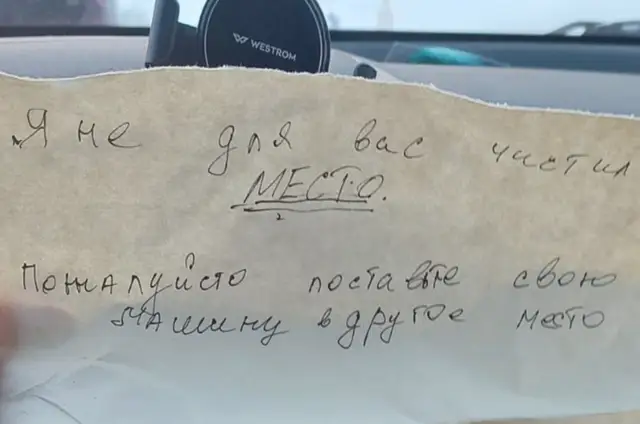 WESTROM
Я не для вас чистил
МЕСТО.
Пожалуйсто поставте свою
машину в другое место